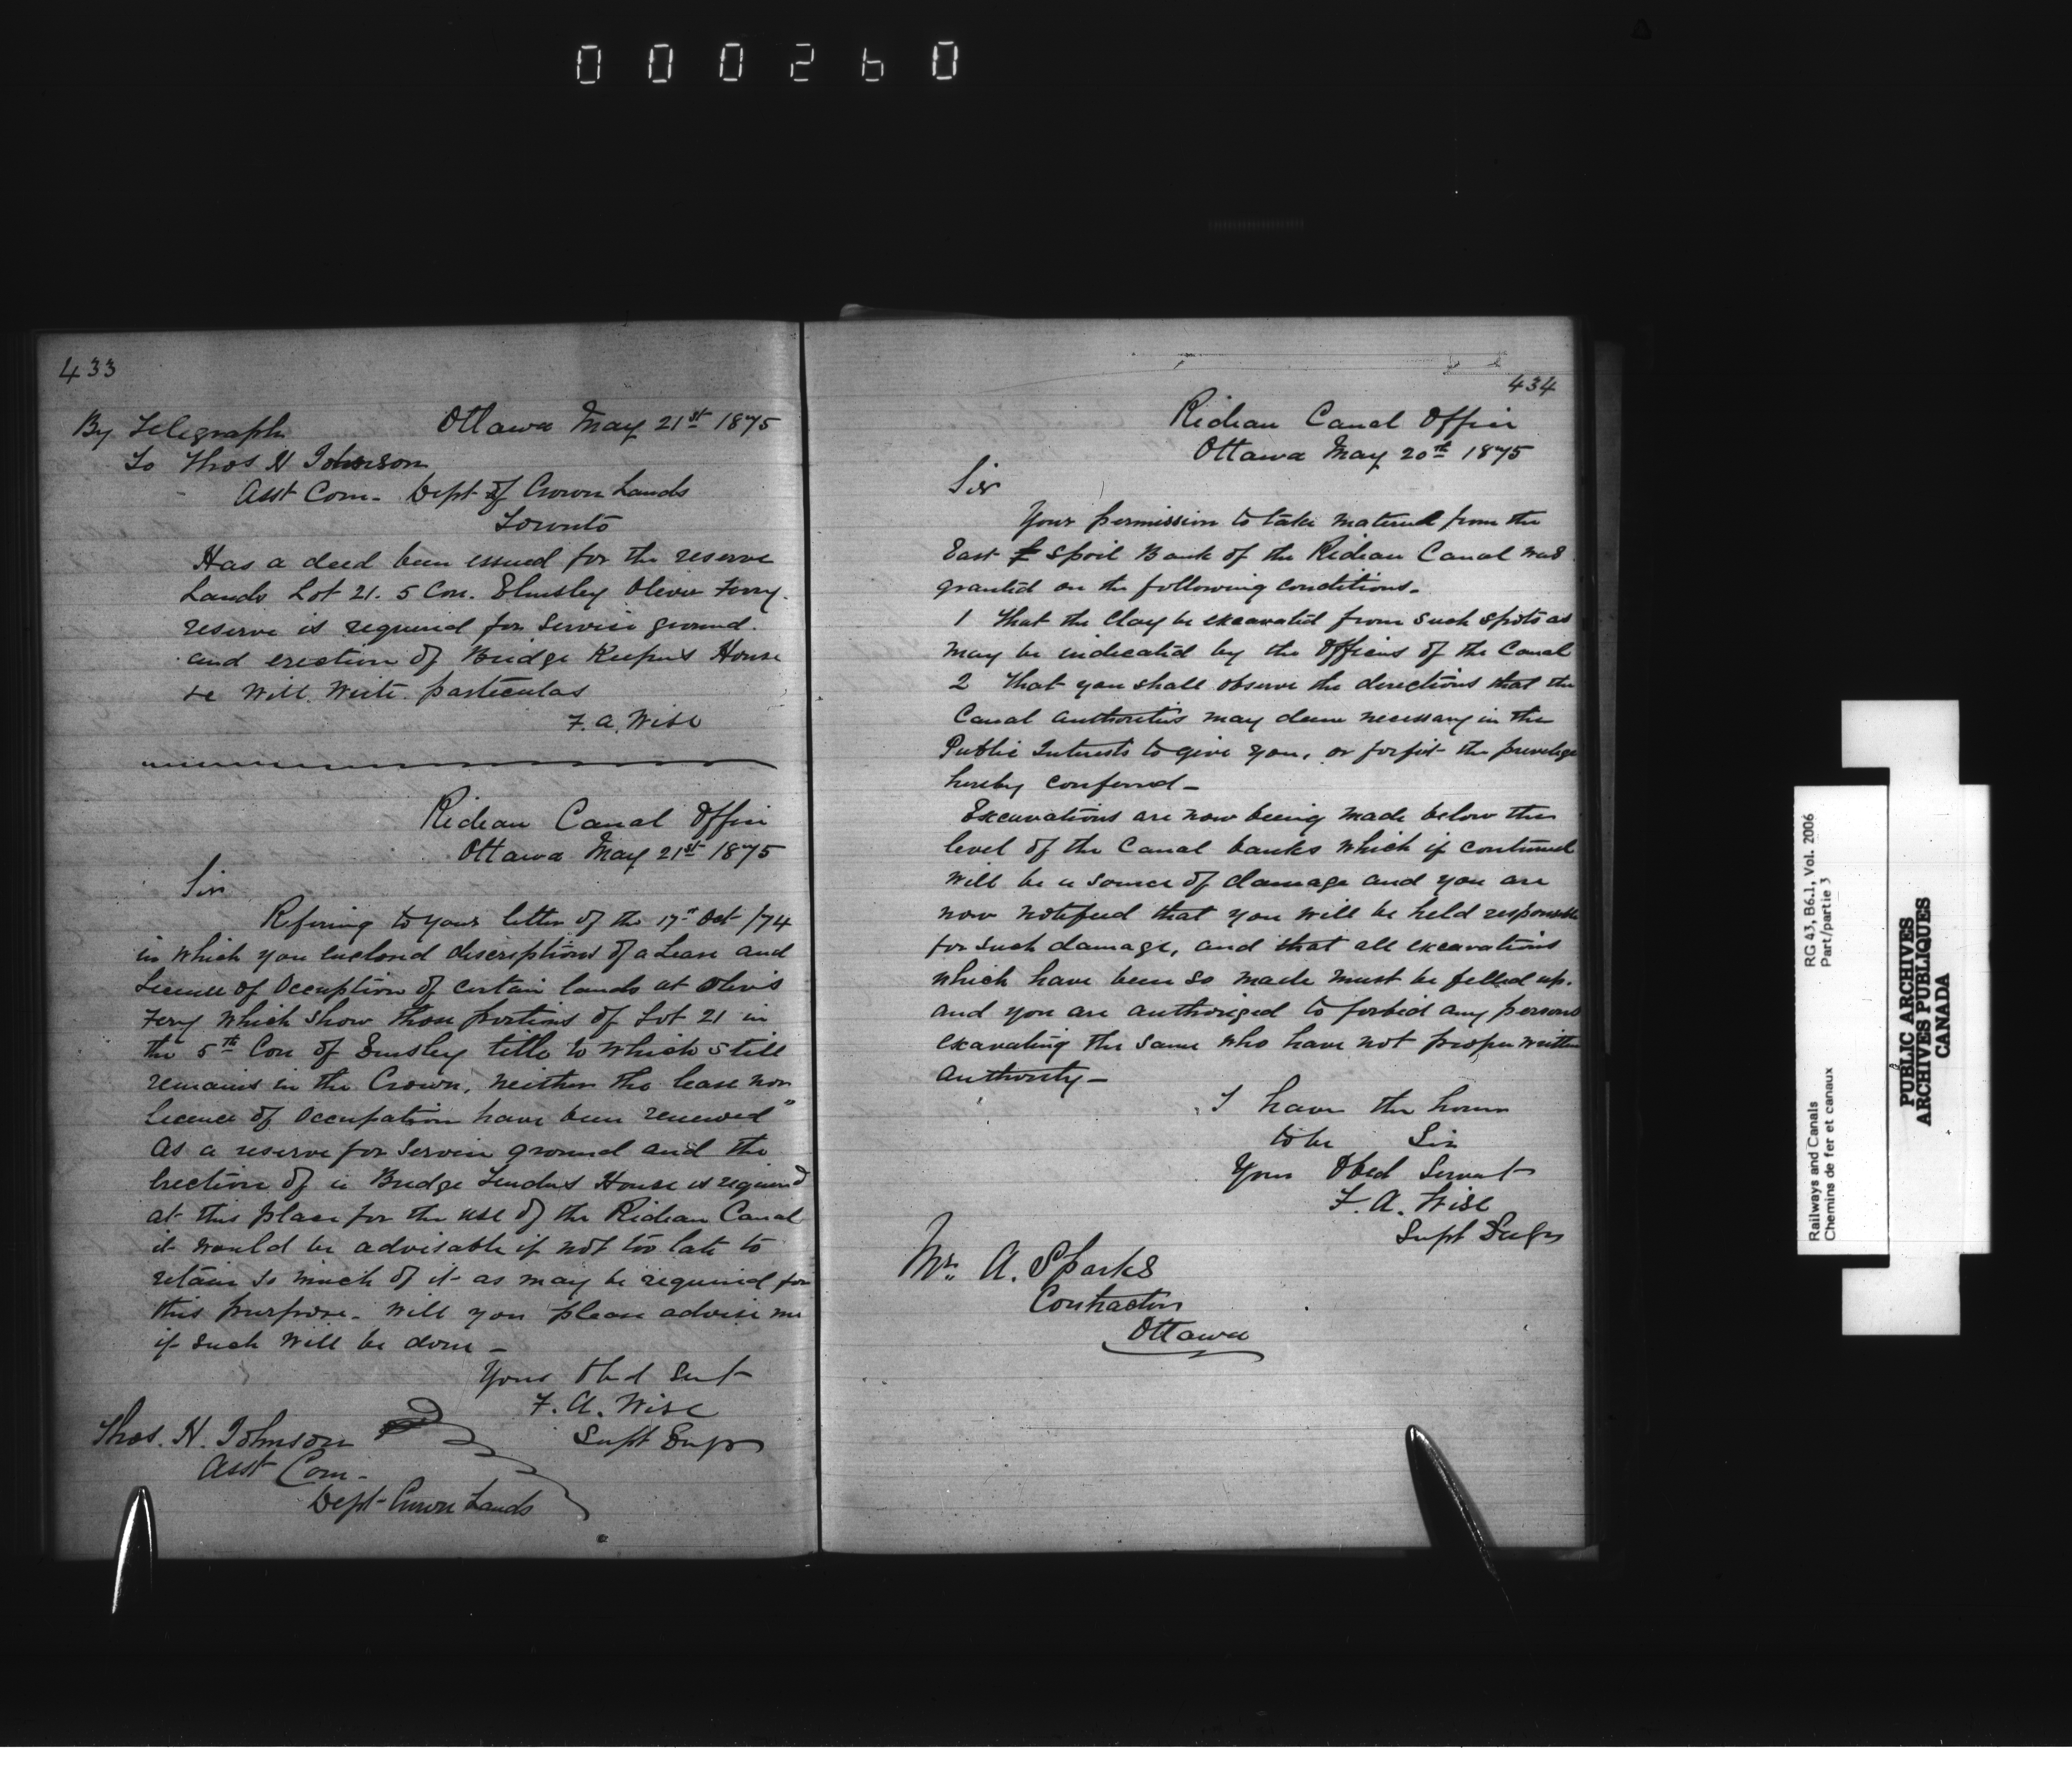 000260
433
By Telegraph Ottawa May 21st 1875
To Thos H Johnson
Asst Com- Dept of Crown Lands
Toronto
Has a deed been issued for the reserve
Lands Lot 21. 5 Con. Elmsley Olivers Ferry.
reserve is required for Service ground.
and erection of Bridge Keepers House
&c Will write particulars
F. A. Wise
Rideau Canal Office
Ottawa May 21st 1875
Sir
Refering to your letter of the 17th Oct /74
in which you enclosed descriptions of a Lease and
License of Occuption of certain lands at Olivers
Ferry which show those portions of Lot 21 in
the 5th Con of Emsley title to which still
remains in the Crown, neither the lease nor
licence of Occupation have been renewed"
As a reserve for Service ground and the
Erection of a Bridge Tenders House is required
at this place for the use of the Rideau Canal
it would be advisable if not too late to
retain so much of it as may be required for
this purpose. Will you please advise me
if such will be done -
Yours Obd Sert
F. A. Wise
Supt Engr
Thos. H. Johnson
Asst Com-
Dept Crown Lands
434
Rideau Canal Office
Ottawa May 20th 1875
Sir
Your permission to take material from the
East Spoil Bank of the Rideau Canal was
granted on the following conditions.
1 That the Clay be excavated from such spots as
may be indicated by the Officers of the Canal
2 That you shall observe the directions that the
Canal authorities may deem necessary in the
Public Interests to give you, or forfeit the privilege
hereby conferred -
Excavations are now being made below the
level of the Canal banks which if continued
will be a source of damage and you are
now notified that you will be held responsible
for such damage, and that all excavations
which have been so made must be filled up.
and you are authorized to forbid any persons
excavating the same who have not proper written
authority -
I have the honor
to be Sir
Your Obed Servant
F. A. Wise
Supt Engr
Mr. A. Sparks
Contractor
Ottawa
RG 43, B6.1, Vol. 2006
Part/partie 3
Railways and Canals
Chemins de fer et canaux
PUBLIC ARCHIVES
ARCHIVES PUBLIQUES
CANADA